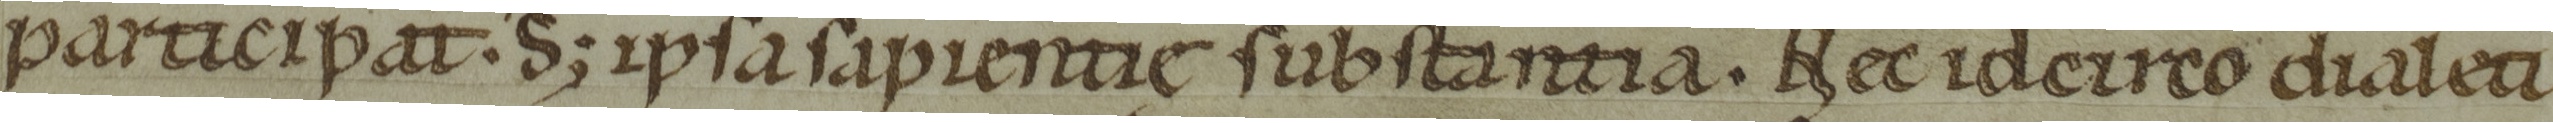 participat. S; ipsa sapientię substantia. Nec idcirco dialeti